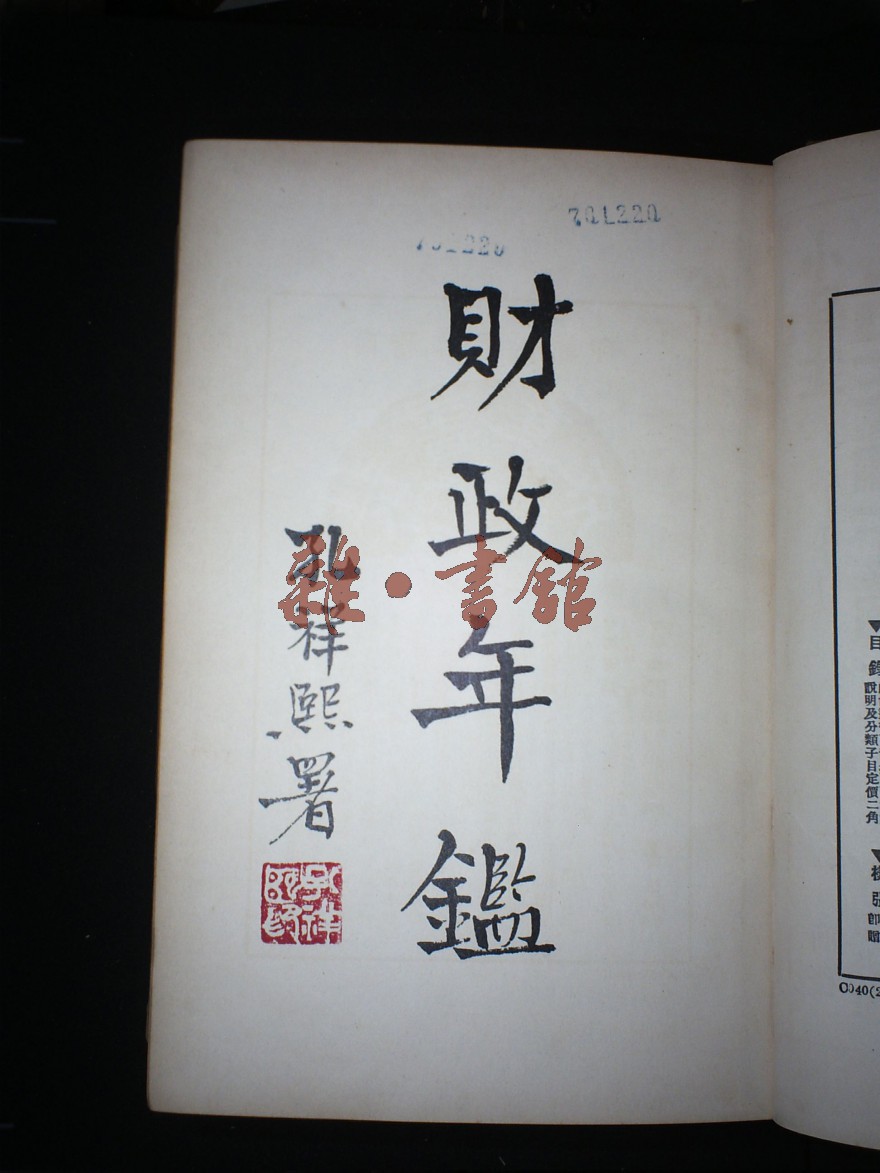 701220
701220
財政年鑑
孔祥熙署
孔祥熙印
雜·書館
目
說明及分類子目定價二角
C040(2